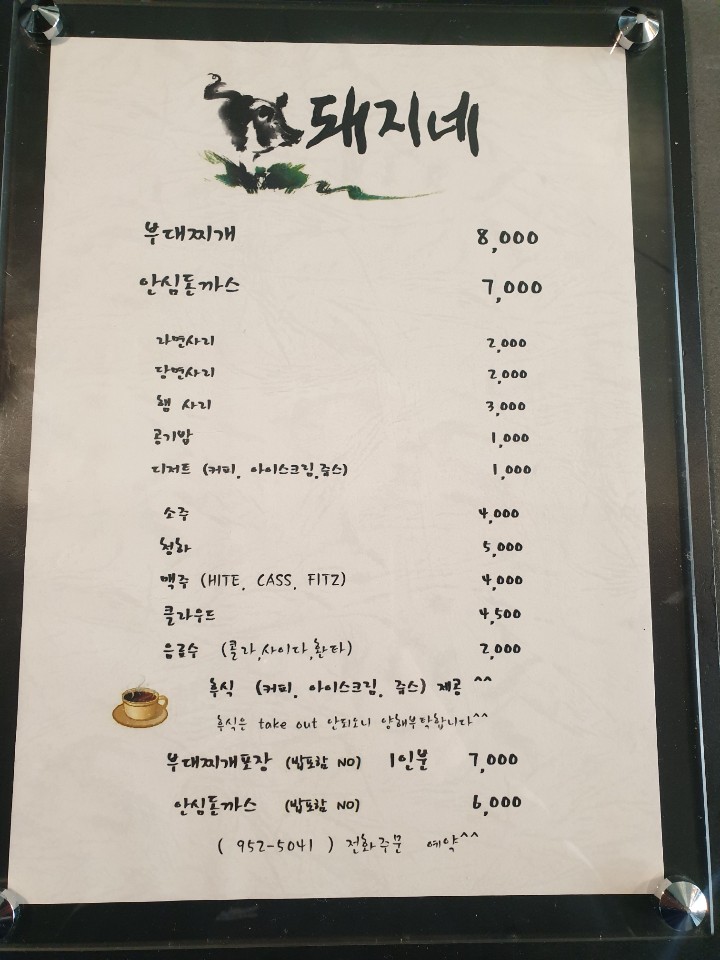 돼지네
부대찌개 8,000
안심돈까스 7,000
라면사리 2,000
당면사리 2,000
햄 사리 3,000
공기밥 1,000
디저트 (커피, 아이스크림,쥬스) 1,000
소주 4,000
청하 5,000
맥주 (HITE, CASS, FITZ) 4,000
클라우드 4,500
음료수 (콜라,사이다,환타) 2,000
후식 (커피, 아이스크림, 쥬스) 제공 ^^
후식은 take out 안되오니 양해부탁합니다^^
부대찌개포장 (밥포함 NO) 1인분 7,000
안심돈까스 (밥포함 NO) 6,000
( 952-5041 ) 전화주문 예약^^